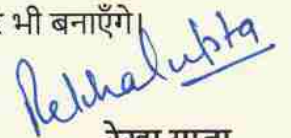 र भी बनाएँगे।
Rekha Gupta
रेखा गुप्ता